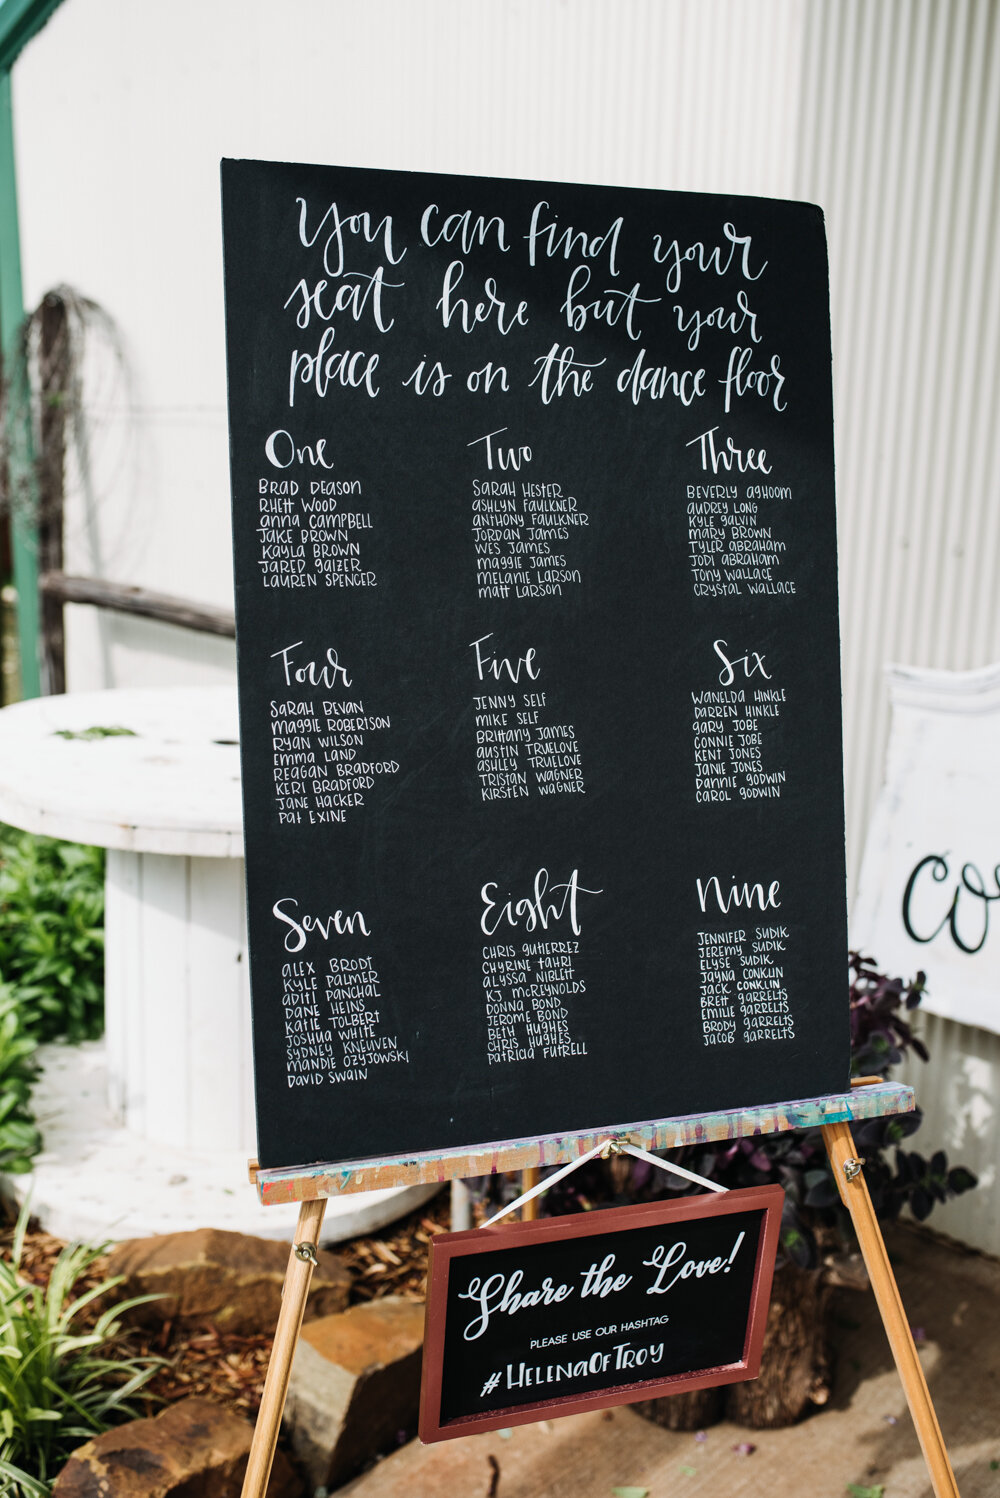 You can find your
seat here but your
place is on the dance floor
One
BRAD DEASON
RHETT WOOD
ANNA CAMPBELL
JAKE BROWN
KAYLA BROWN
JARED GAIZER
LAUREN SPENCER
Two
SARAH HESTER
ASHLYN FAULKNER
ANTHONY FAULKNER
JORDAN JAMES
WES JAMES
MAGGIE JAMES
MELANIE LARSON
MATT LARSON
Three
BEVERLY AGHOOM
AUDREY LONG
KYLE GALVIN
MARY BROWN
TYLER ABRAHAM
JODI ABRAHAM
TONY WALLACE
CRYSTAL WALLACE
Four
SARAH BEVAN
MAGGIE ROBERTSON
RYAN WILSON
EMMA LAND
REAGAN BRADFORD
KERI BRADFORD
JANE HACKER
PAT EXINE
Five
JENNY SELF
MIKE SELF
BRITTANY JAMES
AUSTIN TRUELOVE
ASHLEY TRUELOVE
TRISTAN WAGNER
KIRSTEN WAGNER
Six
WANELDA HINKLE
DARREN HINKLE
GARY JOBE
CONNIE JOBE
KENT JONES
JANIE JONES
DANNIE GODWIN
CAROL GODWIN
Seven
ALEX BRODT
KYLE PALMER
ADITI PANCHAL
DANE HEINS
KATIE TOLBERT
JOSHUA WHITE
SYDNEY KNEUVEN
MANDIE OZYJOWSKI
DAVID SWAIN
Eight
CHRIS GUTIERREZ
CHYRINE TAHRI
ALYSSA NIBLETT
KJ MCREYNOLDS
DONNA BOND
JEROME BOND
BETH HUGHES
CHRIS HUGHES
PATRICIA FUTRELL
Nine
JENNIFER SUDIK
JEREMY SUDIK
ELYSE SUDIK
JAYNA CONKLIN
JACK CONKLIN
BRETT GARRELTS
EMILIE GARRELTS
BRODY GARRELTS
JACOB GARRELTS
Share the Love!
PLEASE USE OUR HASHTAG
#HELENAOFTROY